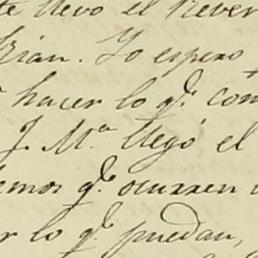 te llevo el Rever
Kian. Yo espero
hacer lo q.e con
J. M.a llegó el
emos q.e ocurren
r lo q.e puedan,